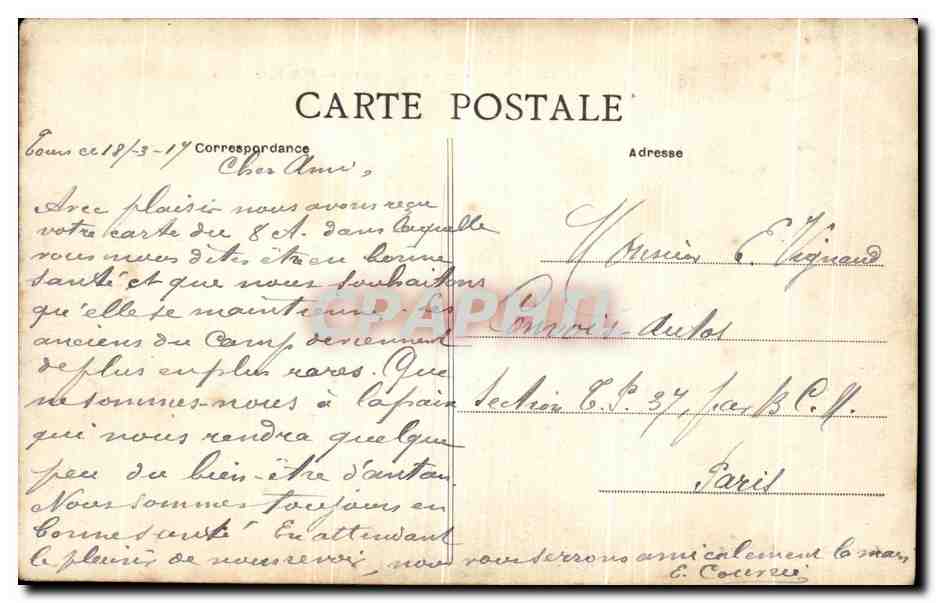 CARTE POSTALE
Tours ce 18/-3-17 Correspondance
Adresse
Cher Ami,
Avec plaisir nous avons reçu
votre carte du 8 ct. dans laquelle
vous nous dites être en bonne
santé et que nous souhaitons
qu'elle se maintienne. Les
anciens du Camp deviennent
de plus en plus rares. Que
ne sommes-nous à la paix
qui nous rendra quelque
peu du bien-être d'antan.
Nous sommes toujours en
bonne santé En attendant
le plaisir de nous revoir, nous vous serrons amicalement la main
E.
Monsieur E. Vignaud
Convois-Autos
Section T.P. 37, par B.C.M.
Paris
CPAPHIL